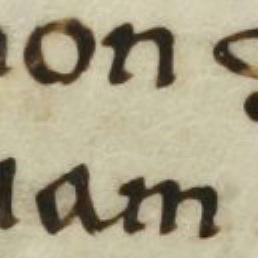 non
am